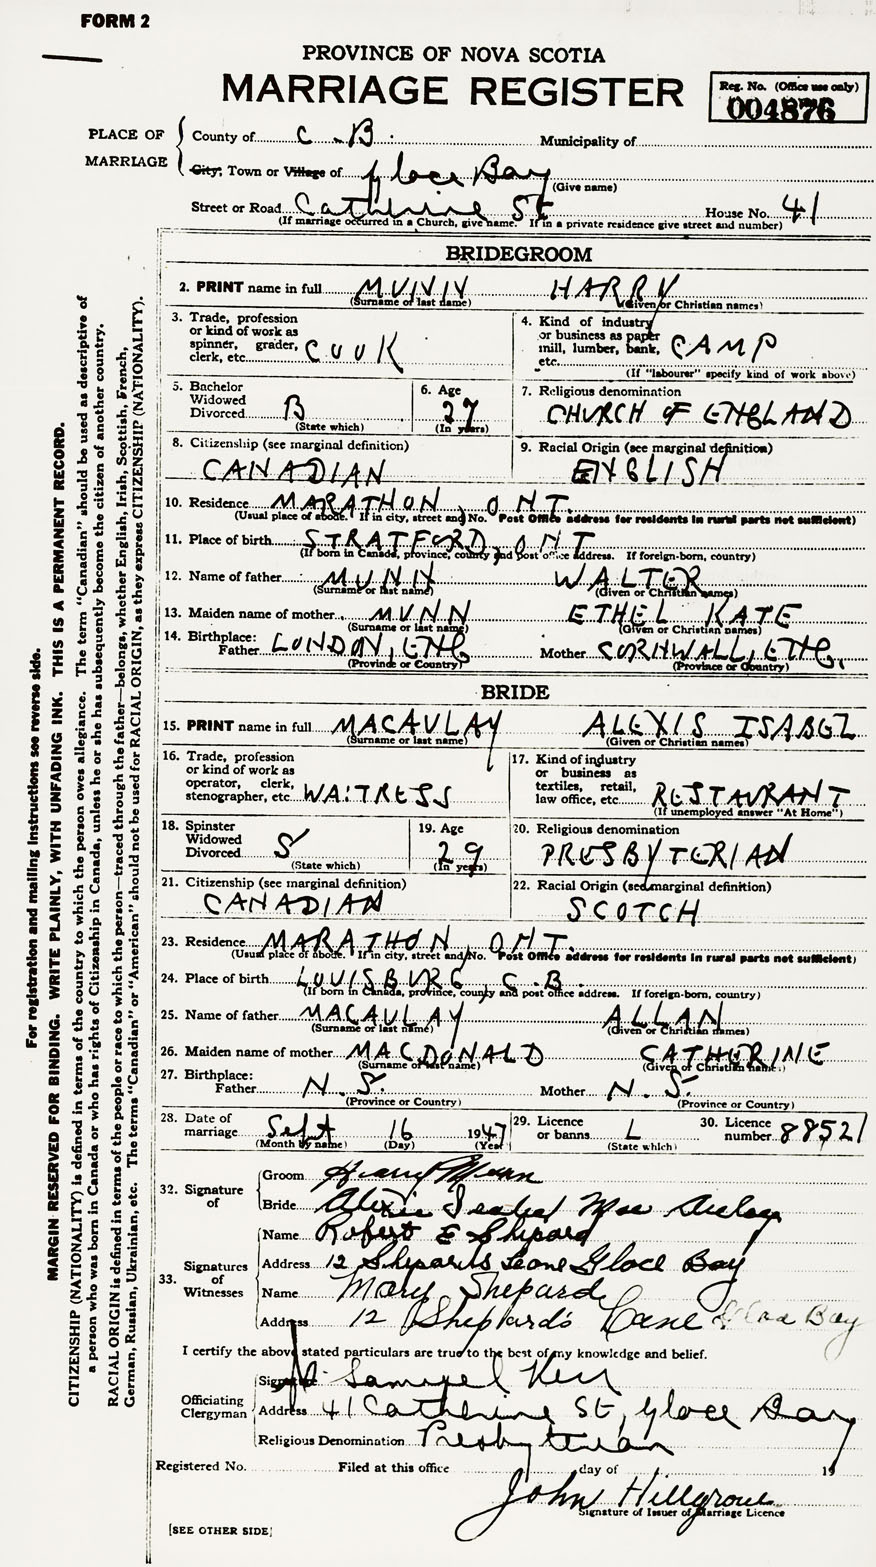 FORM 2
PROVINCE OF NOVA SCOTIA
MARRIAGE REGISTER
Reg. No. (Office use only)
004876
PLACE OF MARRIAGE
County of C.B. Municipality of
City, Town or Village of Glace Bay
(Give name)
Street or Road Catherine St House No. 41
(If marriage occurred in a Church, give name. If in a private residence give street and number)
BRIDEGROOM
2. PRINT name in full MUNN HARRY
(Surname or last name) (Given or Christian names)
3. Trade, profession or kind of work as spinner, grader, clerk, etc. COOK
4. Kind of industry or business as paper mill, lumber, bank, etc. CAMP
(If "labourer" specify kind of work above)
5. Bachelor Widowed Divorced B
(State which)
6. Age 27
(In years)
7. Religious denomination
CHURCH OF ENGLAND
8. Citizenship (see marginal definition)
CANADIAN
9. Racial Origin (see marginal definition)
ENGLISH
10. Residence MARATHON, ONT.
(Usual place of abode. If in city, street and No. Post Office address for residents in rural parts not sufficient)
11. Place of birth STRATFORD, ONT
(If born in Canada, province, county and post office address. If foreign-born, country)
12. Name of father MUNN WALTER
(Surname or last name) (Given or Christian names)
13. Maiden name of mother MUNN ETHEL KATE
(Surname or last name) (Given or Christian names)
14. Birthplace:
Father LONDON, ENG. Mother CORNWALL, ENG.
(Province or Country) (Province or Country)
BRIDE
15. PRINT name in full MACAULAY ALEXIS ISABEL
(Surname or last name) (Given or Christian names)
16. Trade, profession or kind of work as operator, clerk, stenographer, etc. WAITRESS
17. Kind of industry or business as textiles, retail, law office, etc. RESTAURANT
(If unemployed answer "At Home")
18. Spinster Widowed Divorced S
(State which)
19. Age 29
(In years)
20. Religious denomination
PRESBYTERIAN
21. Citizenship (see marginal definition)
CANADIAN
22. Racial Origin (see marginal definition)
SCOTCH
23. Residence MARATHON, ONT.
(Usual place of abode. If in city, street and No. Post Office address for residents in rural parts not sufficient)
24. Place of birth LOUISBURG, C.B.
(If born in Canada, province, county and post office address. If foreign-born, country)
25. Name of father MACAULAY ALLAN
(Surname or last name) (Given or Christian names)
26. Maiden name of mother MACDONALD CATHERINE
(Surname or last name) (Given or Christian names)
27. Birthplace:
Father N.S. Mother N.S.
(Province or Country) (Province or Country)
28. Date of marriage Sept 16 1947
(Month by name) (Day) (Year)
29. Licence or banns L
(State which)
30. Licence number 88521
32. Signature of
Groom Harry Munn
Bride Alexis Isabel MacAulay
33. Signatures of Witnesses
Name Robert E Shepard
Address 12 Shepards Leane Glace Bay
Name Mary Shepard
Address 12 Shephard's Lane Glace Bay
I certify the above stated particulars are true to the best of my knowledge and belief.
Officiating Clergyman
Signature Samuel Kerr
Address 41 Catherine St, Glace Bay
Religious Denomination Presbyterian
Registered No. Filed at this office day of 19
John Hillgrove
Signature of Issuer of Marriage Licence
[SEE OTHER SIDE]
For registration and mailing instructions see reverse side.
MARGIN RESERVED FOR BINDING. WRITE PLAINLY, WITH UNFADING INK. THIS IS A PERMANENT RECORD.
CITIZENSHIP (NATIONALITY) is defined in terms of the country to which the person owes allegiance. The term "Canadian" should be used as descriptive of
a person who was born in Canada or who has rights of Citizenship in Canada, unless he or she has subsequently become the citizen of another country.
RACIAL ORIGIN is defined in terms of the people or race to which the person—traced through the father—belongs, whether English, Irish, Scottish, French,
German, Russian, Ukrainian, etc. The terms "Canadian" or "American" should not be used for RACIAL ORIGIN, as they express CITIZENSHIP (NATIONALITY).